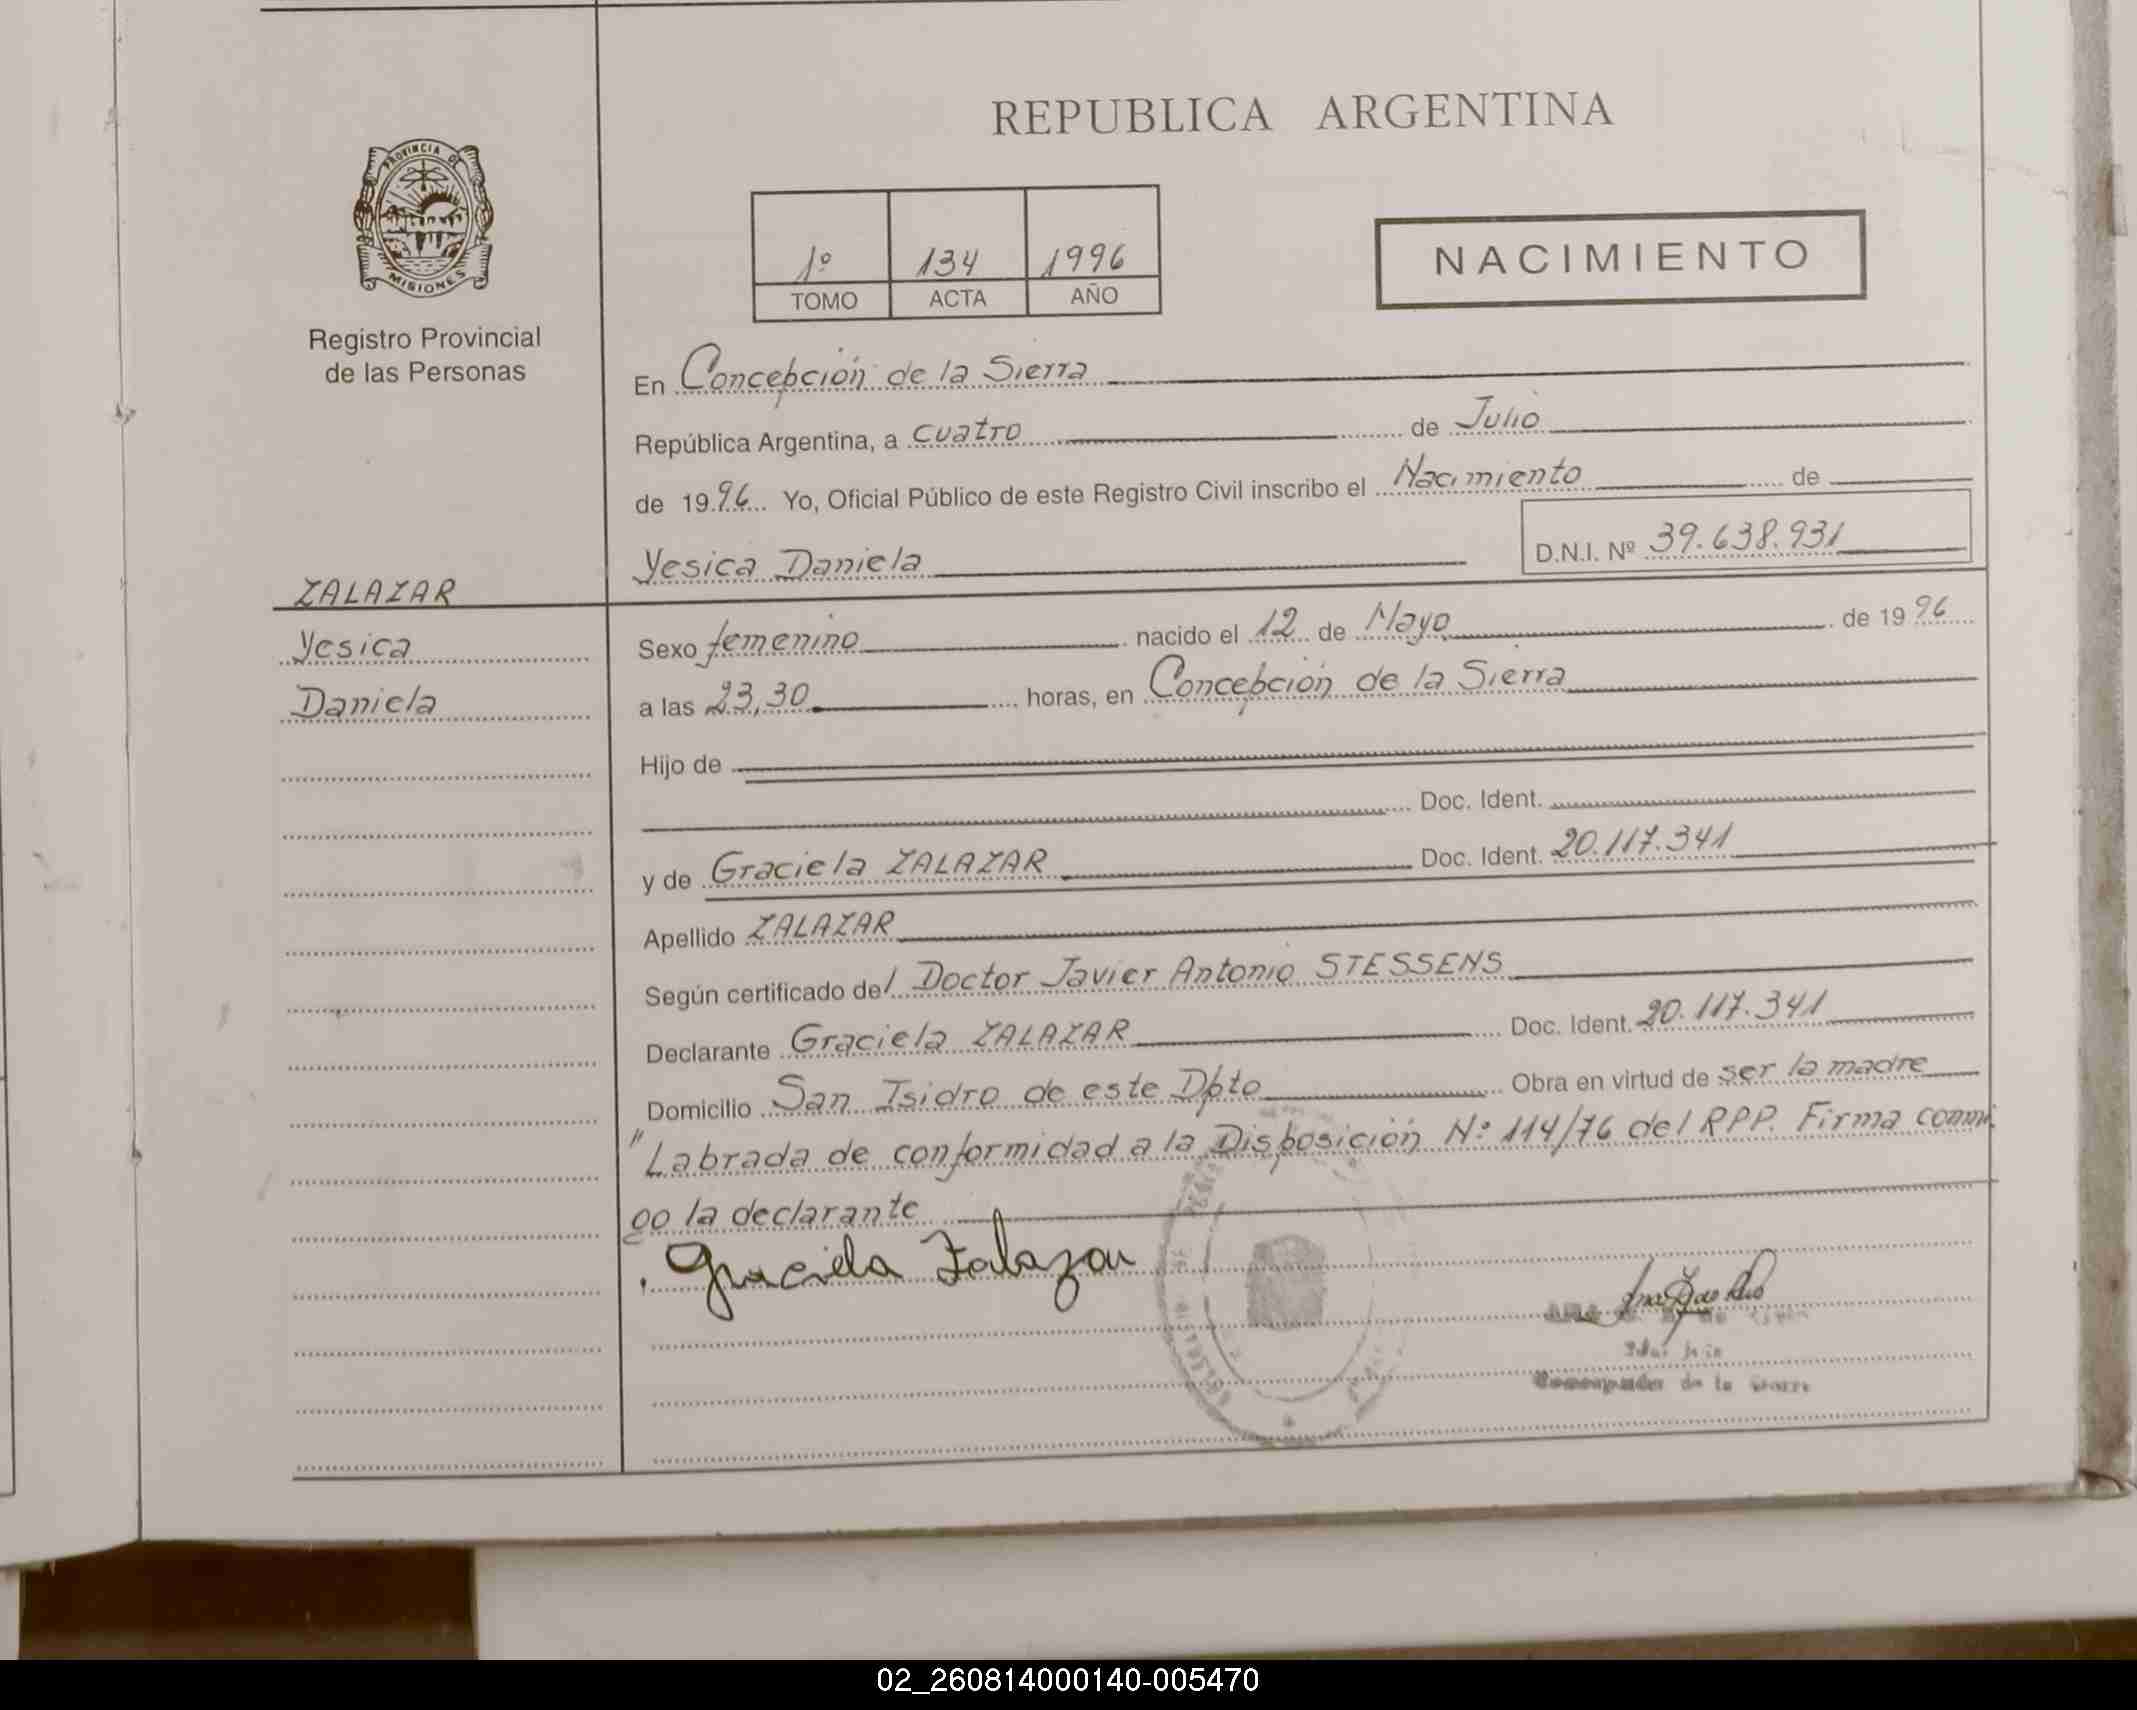 REPUBLICA ARGENTINA
PROVINCIA DE
MISIONES
Registro Provincial
de las Personas
1º 134 1996
TOMO ACTA AÑO
NACIMIENTO
En Concepción de la Sierra
República Argentina, a cuatro de Julio
de 1996 Yo, Oficial Público de este Registro Civil inscribo el Nacimiento de
Yesica Daniela D.N.I. Nº 39.638.931
ZALAZAR
Yesica
Daniela
Sexo femenino nacido el 12 de Mayo de 1996
a las 23,30 horas, en Concepción de la Sierra
Hijo de
Doc. Ident.
y de Graciela ZALAZAR Doc. Ident. 20.117.341
Apellido ZALAZAR
Según certificado del Doctor Javier Antonio STESSENS
Declarante Graciela ZALAZAR Doc. Ident. 20.117.341
Domicilio San Isidro de este Dpto Obra en virtud de ser la madre
"Labrada de conformidad a la Disposición Nº 114/76 del RPP. Firma conmi
go la declarante
Graciela Zalazar
de la Sierra
02_260814000140-005470